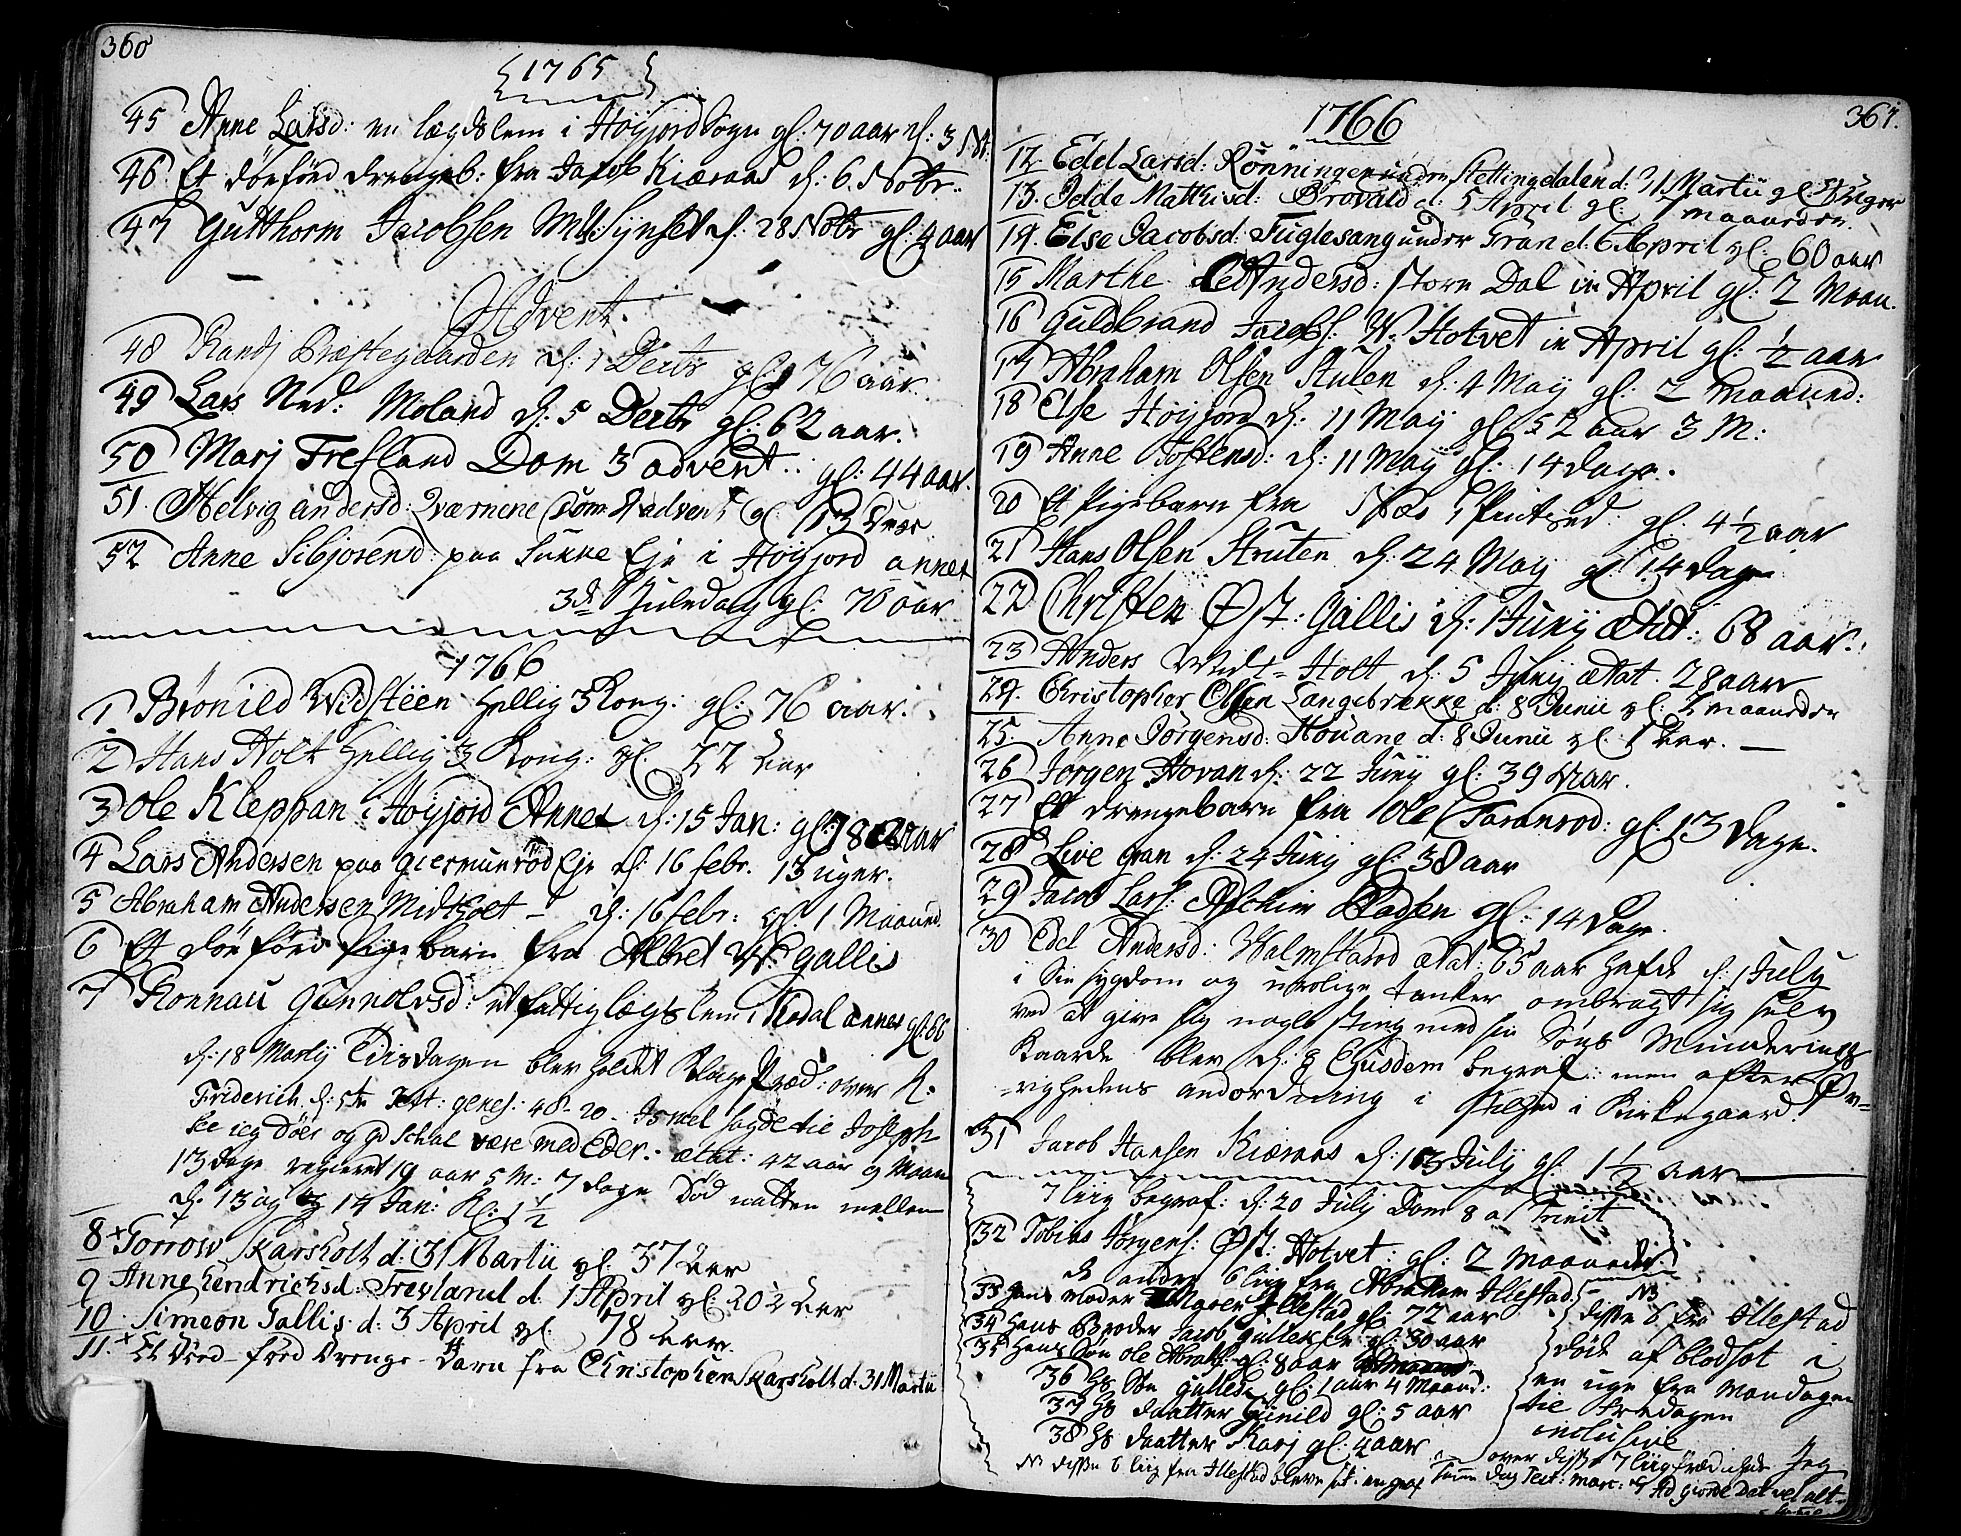 360
1765
45 Anne Larsd: en lægdslem i Høyjord Sogn gl: 70 aar d: 3 Nbr
46 Et dødfød drengeb: fra Jacob Kiæraas d: 6. Nobr:
47 Gutthorm Jacobsen Mell: Synset d. 28 Nobr gl: 4 aar
Advent.
48 Randj Præstegaarden d: 1 Decbr gl: 76 aar.
49 Lars Ned: Moland d: 5 Decbr gl: 62 aar.
50 Marj Trefland Dom 3 advent. gl: 44 aar.
51. Helvig Andersd: Qværnene Dom 4 advent gl. 13
52 Anne Sibjørensd: paa Sukke Eje i Høyjord annex
3de Juledag gl: 70 aar
1766
1 Brønild Widsteen Hellig 3 Kong: gl: 76 aar.
2 Hans Holt Hellig 3 Kong: gl. 22 aar
3 Ole Kleppan i Høyjord Annex d: 15 Jan: gl: 78 aar
4 Lars Andersen paa giermunrød Eje d: 16 febr. 13 uger.
5 Abraham Andersen Midtholt d: 16 febr: gl: 1 Maaned
6 Et dødfød pigebarn fra Albret W: gallis
7 Ronnau Gunnolvsd: et fattig lægslem i Kodal annex gl: 66
d: 18 Martj Tirsdagen blev holdet Klage Præd: over K:
Friderich d: 5te Text: genes: 48-20- Israel sagde til Joseph
see jeg døer og gd schal være med Eder. ætat: 42 aar 9 Maan
13 dage regieret 19 aar 5 M: 7 dage død natten mellem
d. 13 og 14 Jan: Kl: 1½
8 Torrow Skarsholt d: 31 Martii gl. 37 aar
9 Anne Hendrichsd: Trevland d. 1 April gl. 20½ aar
10. Simeon Gallis. d: 3 April gl. 78 aar.
11. Et død-fød Drenge-Barn fra Christopher Skarsholt d: 31 Martii
361.
1766
12 Edel Larsd: Rønningen under Stettingdalen d: 31 Martii gl: uger
13. Odde Mathisd: Brovald d: 5 April gl. 7 maaneder.
14. Else Jacobsd: Fuglesang under Gran d. 6 April gl. 60 aar
15 Marthe Andersd: store Dal in April gl: 2 Maan.
16 Guldbrand Jacobs: W: Hotvet in April gl: ½ aar
17 Abraham Olsen Stulen d. 4 May gl: 2 Maaned:
18 Else Høyjord d: 11 May gl 52 aar 3 M:
19 Anne Tostensd: d: 11 May gl: 14 dage.
20 Et Pigebarn fra gl: 4½ aar
21 Hans Olsen Struten d. 24 May gl: 14 dage
22 Christen Øst: Gallis d: 1 Junj ætat: 68 aar.
23 Anders Widt= Holt d. 5 Junj ætat. 28 aar
24. Christopher Olsen Langebrække d: 8 Junii gl: maaneder
25. Anne Jørgensd: Houane d: 8 Junii gl. 1 aar.
26 Jørgen Hovan d: 22 Junj gl: 39 aar.
27 Et drengebarn fra Ole Taranrød: gl: 13 dage.
28 Live gran d: 24 Junj gl: 38 aar
29 Jacob Lars: Achim Madsen gl: 14 dage.
30 Edel Andersd: Walmstad ætat: 65 aar hafde d: 1 July
i sin sygdom og urolige tanker ombragt sig selv
ved at give sig nogle sting med sin Søns Munderings
Kaarde blev d: 8 Ejusdem begraf: men efter Øv=
=righedens andordning i stilhed i Kirkegaard!
31 Jacob Hansen Kiæraas d: 13 July gl: 1½ aar
7 liig begraf: d: 20 July Dom 8 a Trinit
32 Tobias Jørgens: Øst: Hotvet: gl: 2 Maaneder.
de andre 6 liig fra Abraham Illestad
33 hans Moder Illestad gl: 72 aar
34 hans Broder Jacob Gullex: gl: 30 aar
35 hans Søn Ole Abrah: gl: 8 aar
36 hs Søn Gullex gl: 1 aar 4 Maaned:
37 hs daatter Gunild gl: 5 aar
38 hs daatter Karj gl: 4 aar
NB
disse 6 fra Illestad
døde af blodsot i
en uge fra Mandagen
til tredagen
inclusive
over disse 7 liig præd: Jeg
NB disse 6 liig fra Illestad bleve sat i en grav samme dag Text: Marc: Hd giorde Det vel alt